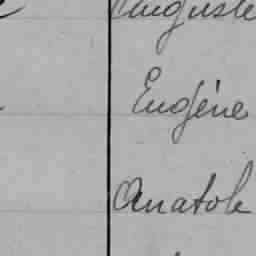 Auguste
Eugène
Anatole